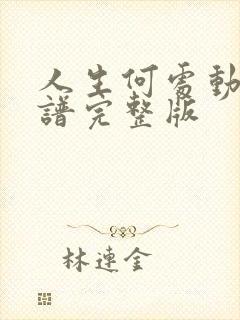 人生何處動
譜完整版
林連金